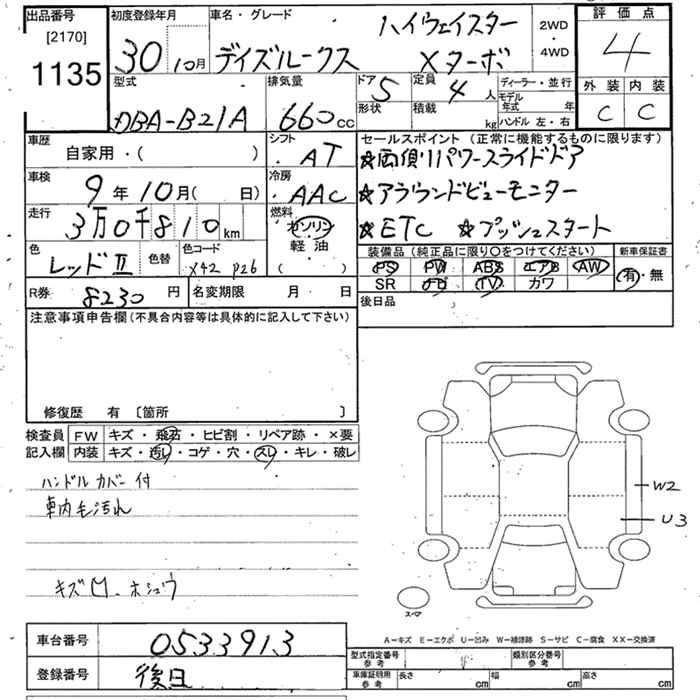 出品番号
[2170]
1135
初度登録年月
30 10月
車名・グレード
ハイウェイスター
デイズルークス Xターボ
2WD
・
4WD
評価点
4
外装 内装
C C
型式
DBA-B21A
排気量
660cc
ドア 5
形状
定員 4人
積載 kg
ディーラー・並行
モデル
年式 年
ハンドル 左・右
車歴
自家用・( )
シフト
AT
車検
9年10月( 日)
冷房
AAC
走行
3万0千810km
燃料
ガソリン
軽油
( ・ )
色
レッドII
色替
色コード
X42 P26
セールスポイント (正常に機能するものに限ります)
☆両側パワースライドドア
☆アラウンドビューモニター
☆ETC ☆プッシュスタート
装備品 (純正品に限り○をつけてください)
新車保証書
PS PW ABS エアB AW
SR FD TV カワ
有・無
R券 8230円
名変期限 月 日
後日品
注意事項申告欄(不具合内容等は具体的に記入して下さい)
修復歴 有 〔箇所 〕
検査員
記入欄
FW キズ・飛石・ヒビ割・リペア跡・×要
内装 キズ・汚レ・コゲ・穴・スレ・キレ・破レ
ハンドルカバー付
車内毛汚れ
キズ凹、ホシュウ
W2
U3
スペア
A−キズ E−エクボ U−凹み W−補修跡 S−サビ C−腐食 XX−交換済
車台番号
0533913
登録番号
後日
型式指定番号
参考
類別区分番号
参考
車庫証明用
参考
長さ cm
幅 cm
高さ cm